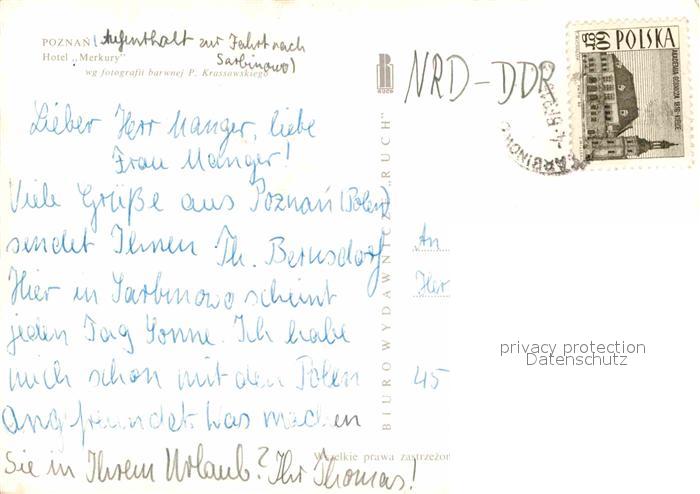 POZNAŃ (Aufenthalt zur Fahrt nach
Hotel „Merkury" Sarbinowo)
wg fotografii barwnej P. Krassowskiego
RUCH
NRD-DDR
60 GR POLSKA
SARBINOWO
Lieber Herr Manger, liebe
Frau Manger!
Viele Grüße aus Poznań (Polen)
sendet Ihnen Th. Bernsdorf
Hier in Sarbinowo scheint
jeden Tag Sonne. Ich habe
mich schon mit den Polen
angefreundet. Was machen
Sie in Ihrem Urlaub? Ihr Thomas!
BIURO WYDAWNICZE „RUCH"
An
Her
45
privacy protection
Datenschutz
Wszelkie prawa zastrzeżon